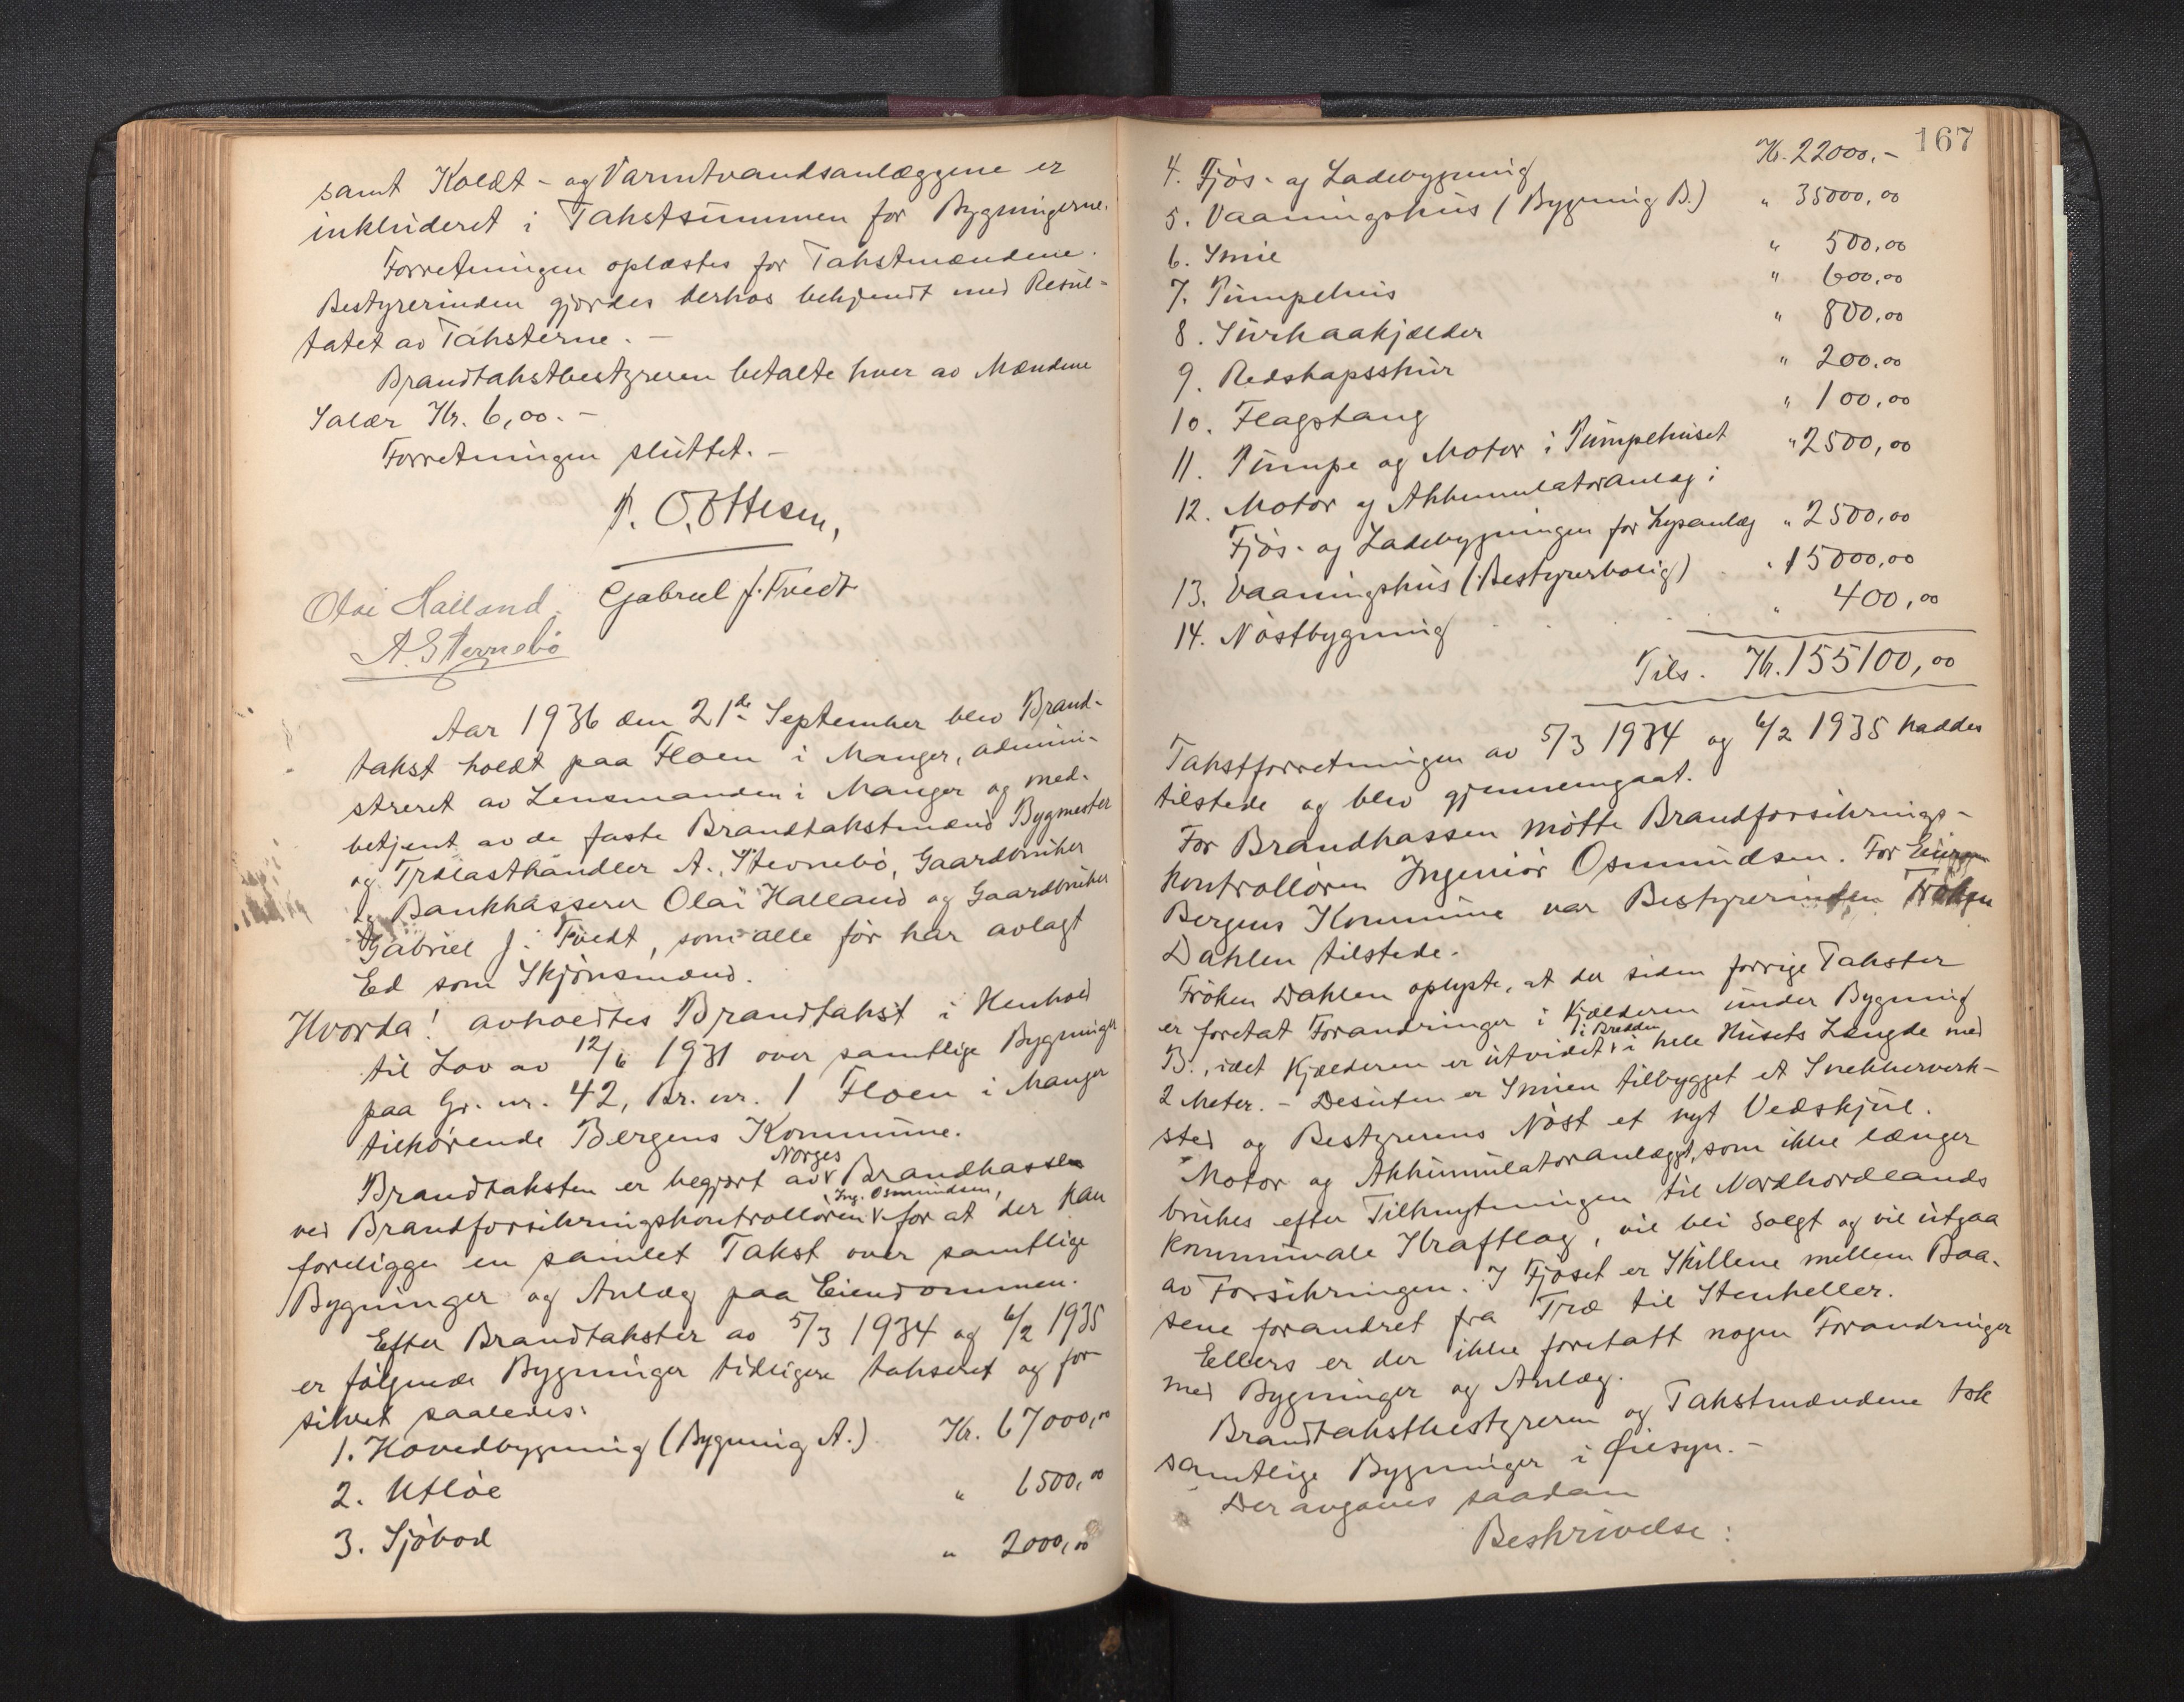 samt Koldt- og Varmtvandsanlæggene er
inkluderet i Takstsummen for Bygningerne.
Forretningen oplæstes for Takstmændene.
Bestyrerinden gjordes derhos bekjendt med Resul-
tatet av Taksterne. -
Brandtakstbestyreren betalte hver av Mændene
Salær Kr. 6,00. -
Forretningen sluttet. -
P. O. Ottesen,
Gabriel J. Tvedt
Olai Halland.
A. Stevnebö
Aar 1936 den 21de September blev Brand-
takst holdt paa Floen i Manger, admini-
streret av Lensmanden i Manger og med-
betjent av de faste Brandtakstmænd Bygmester
og Trælasthandler A. Stevnebö, Gaardbruker
og Bankkasserer Olai Halland og Gaardbruker
Gabriel J. Tvedt, som alle før har avlagt
Ed som Skjönsmænd.
Hvorda! avholdtes Brandtakst i Henhold
til Lov av 12/6 1931 over samtlige Bygninger
paa Gr. nr. 42, Br. nr. 1 Floen i Manger
tilhörende Bergens Kommune.
Norges
Brandtaksten er begjært av Brandkassen
Ing. Osmundsen,
ved Brandforsikringskontrollören for at der kan
foreligge en samlet Takst over samtlige
Bygninger og Anlæg paa Eiendommen.
Efter Brandtakster av 5/3 1934 og 6/2 1935
er fölgende Bygninger tidligere takseret og for-
sikret saaledes:
1. Hovedbygning (Bygning A.) Kr. 67000,00
2. Utlöe " 6500,00
3. Sjöbod " 2000,00
167
4. Fjös- og Ladebygning Kr. 22000.-
5. Vaaningshus (Bygning B.) " 35000,00
6. Smie " 500,00
7. Pumpehus " 600,00
8. Surhaakjælder " 800,00
9. Redskapsskur " 200,00
10. Flagstang " 100,00
11. Pumpe og Motor i Pumpehuset " 2500,00
12. Motor og Akkumulatoranlæg i
Fjös- og Ladebygningen for Lysanlæg " 2500,00
13. Vaaningshus (Bestyrerbolig) " 15000,00
14. Nöstbygning " 400,00
Tils. Kr. 155100,00
Takstforretningen av 5/3 1934 og 6/2 1935 haddes
tilstede og blev gjennemgaat.
For Brandkassen mötte Brandforsikrings-
kontrollören Ingeniör Osmundsen. For Eieren
Bergens Kommune var Bestyrerinden Fröken
Dahlen tilstede.
Fröken Dahlen oplyste, at der siden forrige Takster
er foretat Forandringer i Kjælderen under Bygning
i Bredden
B., idet Kjælderen er utvidet i hele Husets Længde med
2 Meter. - Desuten er Smien tilbygget et Snekkerverk-
sted og Bestyrerens Nöst et nyt Vedskjul.
Motor og Akkumulatoranlægget, som ikke længer
brukes efter Tilknytningen til Nordhordlands
kommunale Kraftlag, vil bli solgt og vil utgaa
av Forsikringen. I Fjöset er Skillene mellem Baa-
sene forandret fra Træ til Stenheller.
Ellers er der ikke foretatt nogen Forandringer
med Bygninger og Anlæg.
Brandtakstbestyreren og Takstmændene tok
samtlige Bygninger i Øiesyn. -
Der avgaves saadan
Beskrivelse: